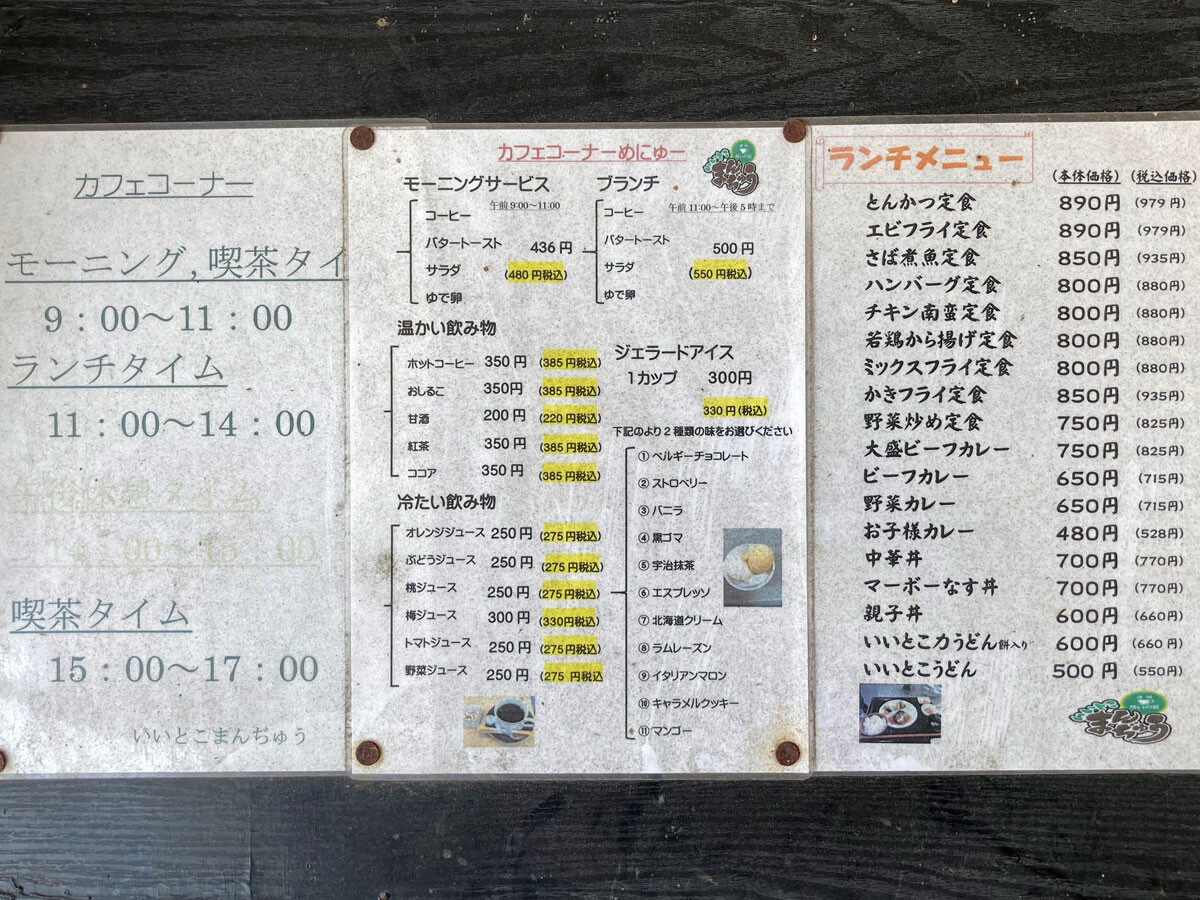 カフェコーナー
モーニング,喫茶タイ
9：00～11：00
ランチタイム
11：00～14：00
喫茶タイム
15：00～17：00
いいとこまんぢゅう
カフェコーナーめにゅー
モーニングサービス
午前9:00～11:00
コーヒー
バタートースト 436円
サラダ (480円税込)
ゆで卵
ブランチ
午前11:00～午後5時まで
コーヒー
バタートースト 500円
サラダ (550円税込)
ゆで卵
温かい飲み物
ホットコーヒー 350円 (385円税込)
おしるこ 350円 (385円税込)
甘酒 200円 (220円税込)
紅茶 350円 (385円税込)
ココア 350円 (385円税込)
冷たい飲み物
オレンジジュース 250円 (275円税込)
ぶどうジュース 250円 (275円税込)
桃ジュース 250円 (275円税込)
梅ジュース 300円 (330円税込)
トマトジュース 250円 (275円税込)
野菜ジュース 250円 (275 円税込
ジェラードアイス
1カップ 300円
330円(税込)
下記のより2種類の味をお選びください
① ベルギーチョコレート
② ストロベリー
③ バニラ
④ 黒ゴマ
⑤ 宇治抹茶
⑥ エスプレッソ
⑦ 北海道クリーム
⑧ ラムレーズン
⑨ イタリアンマロン
⑩ キャラメルクッキー
⑪ マンゴー
ランチメニュー
(本体価格) (税込価格)
とんかつ定食 890円 (979円)
エビフライ定食 890円 (979円)
さば煮魚定食 850円 (935円)
ハンバーグ定食 800円 (880円)
チキン南蛮定食 800円 (880円)
若鶏から揚げ定食 800円 (880円)
ミックスフライ定食 800円 (880円)
かきフライ定食 850円 (935円)
野菜炒め定食 750円 (825円)
大盛ビーフカレー 750円 (825円)
ビーフカレー 650円 (715円)
野菜カレー 650円 (715円)
お子様カレー 480円 (528円)
中華丼 700円 (770円)
マーボーなす丼 700円 (770円)
親子丼 600円 (660円)
いいとこ力うどん餅入り 600円 (660円)
いいとこうどん 500円 (550円)
まんぢゅう